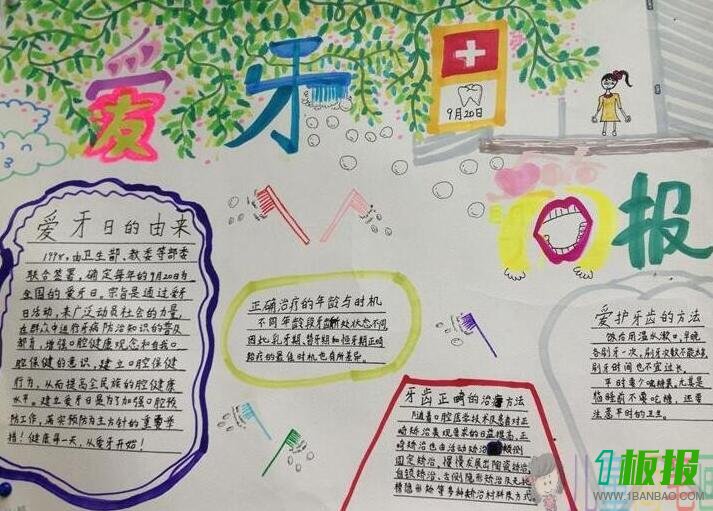 爱牙日
9月20日
口报
爱牙日的由来
1994,由卫生部、教委等部委
联合签署,确定每年的9月20日为
全国的爱牙日。宗旨是通过爱牙
日活动,来广泛动员社会的力量,
在群众中进行牙病防治知识的普及
教育,增强口腔健康观念和自我口
腔保健的意识,建立口腔保健
行为,从而提高全民族的腔健康
水平。建立爱牙日是为了加强口腔预
防工作,落实预防为主方针的重要举
措!健康每一天,从爱牙开始!
正确治疗的年龄与时机
不同年龄段牙所处状态不同
因此乳牙期、替牙期和恒牙期正畸
治疗的最佳时机也有所差异。
牙齿正畸的治方法
随着口腔医学技术及患者对正
畸矫治美观需求的日益提高,正
畸矫治也由活动矫治
固定矫治,慢慢发展出陶瓷矫治,
自锁矫治、舌侧隐形矫治及无托
槽隐形矫等多种矫治材料及方式
爱护牙齿的方法
饭后用温水漱口,早晚
各刷牙一次,刷牙次数不能太多
刷牙时间也不宜过长。
平时少吃糖果,尤其是
临睡前不要吃糖,还要
注意平时的卫生。
1板报
WWW.1BANBAO.COM